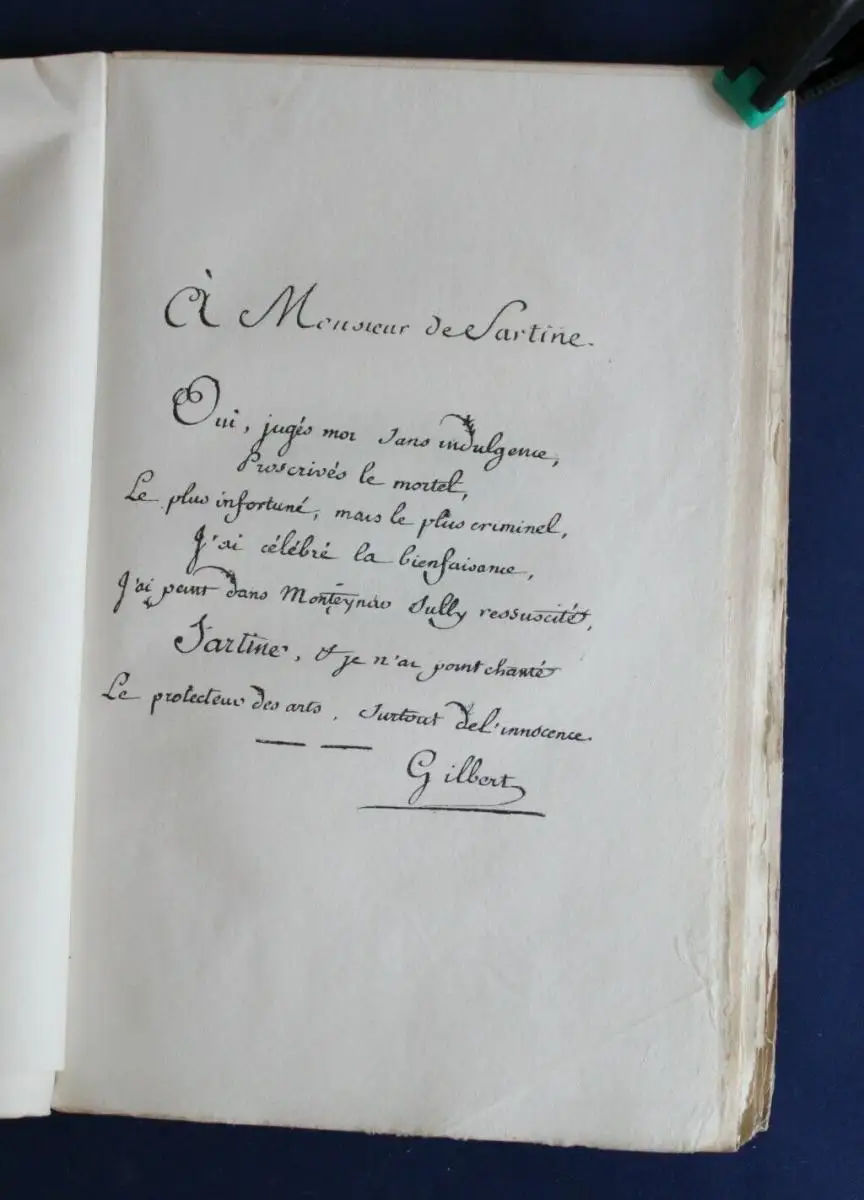 À Monsieur de Sartine.
Oui, jugés moi sans indulgence,
Proscrivés le mortel,
Le plus infortuné, mais le plus criminel,
J'ai célébré la bienfaisance,
J'ai peint dans Monteynar Sully ressuscité,
Sartine, & je n'ai point chanté
Le protecteur des arts, surtout de l'innocence.
Gilbert